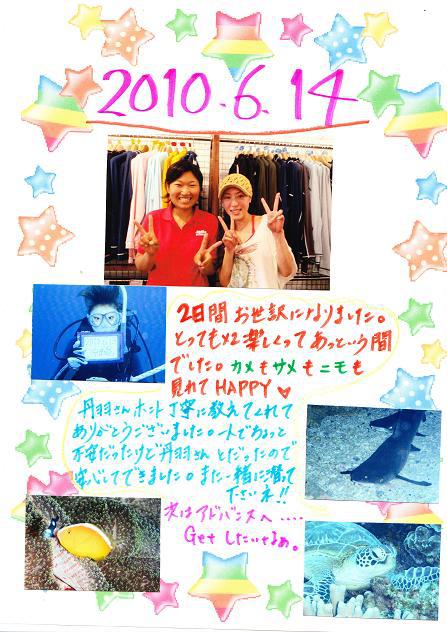 2010.6.14
2日間お世話になりました。
とってもx2楽しくってあっという間
でした。カメもサメもニモも
見れてHAPPY♡
丹羽さんホント丁寧に教えてくれて
ありがとうございました。一人でちょっと
不安だったけど丹羽さんとだったので
安心してできました。また一緒に潜って
下さいネ!!
次はアドバンスへ....
Getしたいなぁ。